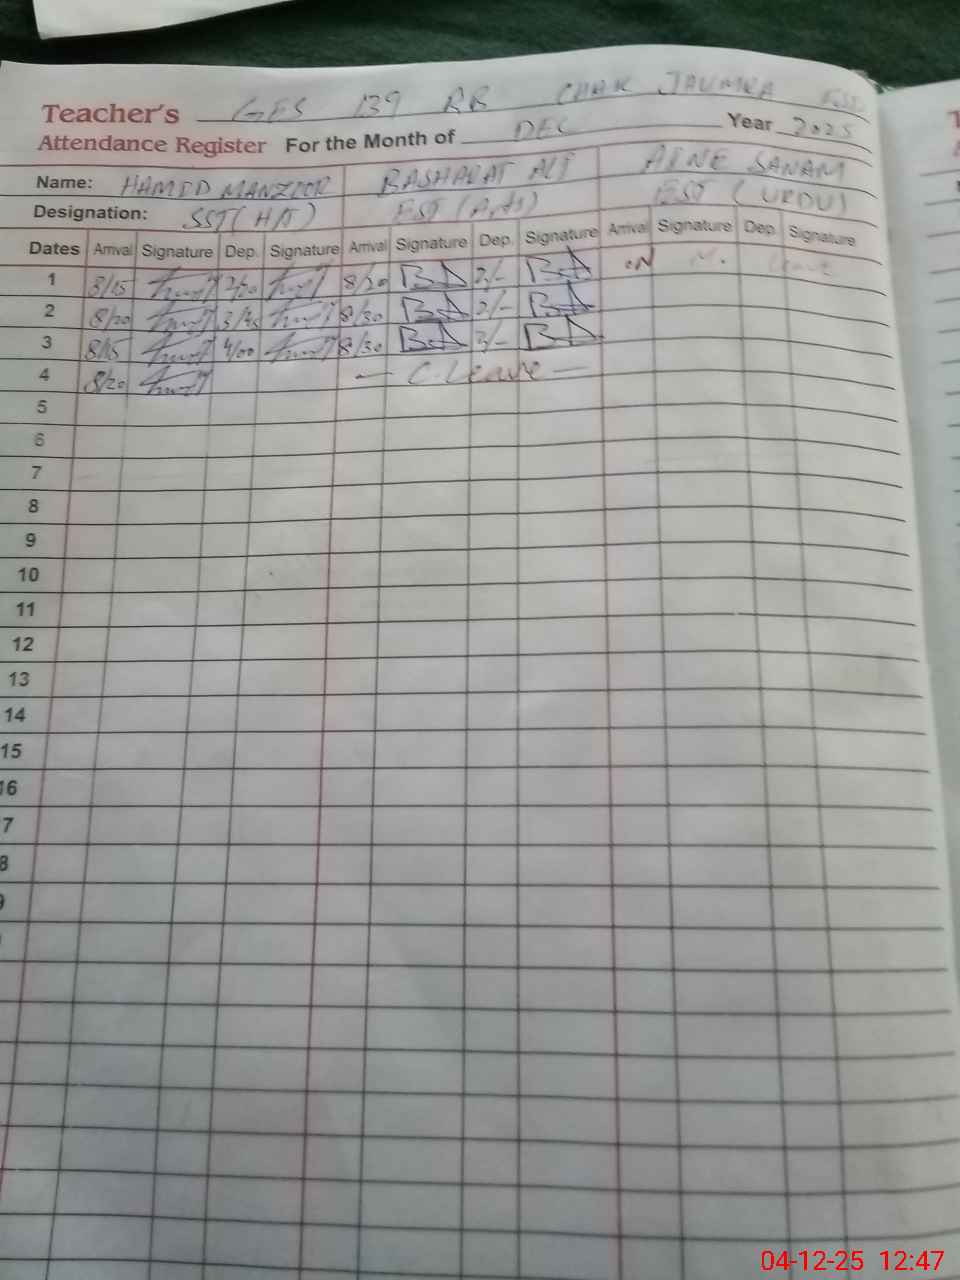 Teacher's GES 139 RB CHAK JHUMRA
Attendance Register For the Month of DEC Year 2025
Name: HAMID MANZOOR BASHARAT ALI SANAM
Designation: SST (HM) EST (Arts) EST (URDU)
Dates Arrival Signature Dep. Signature Arrival Signature Dep. Signature Arrival Signature Dep. Signature
1 8/15 8/20 BA BA ON M. Leave
2 8/20 3/45 8/30 BA BA
3 8/15 4/00 8/30 BA 3/- BA
4 8/20 — C. Leave —
5
6
7
8
9
10
11
12
13
14
15
16
7
8
04-12-25 12:47